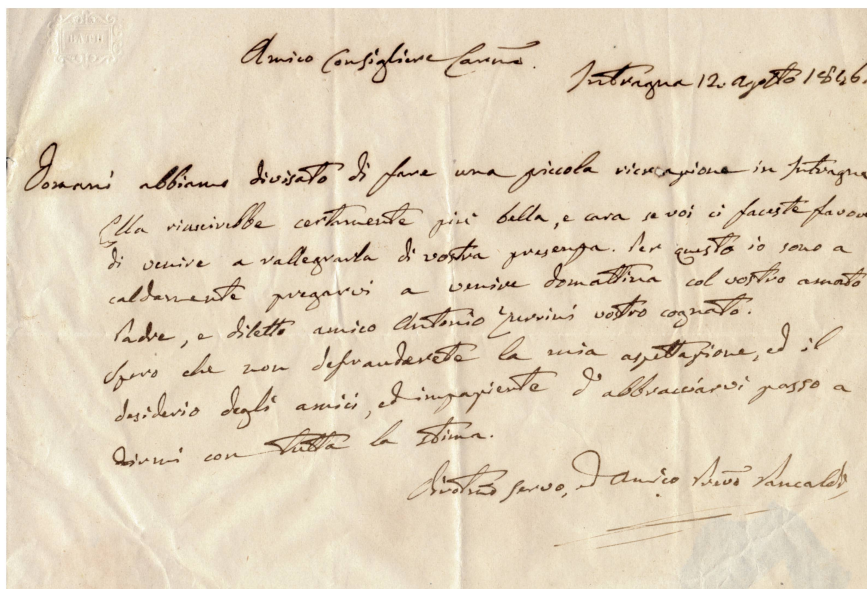 BATH
Amico Consigliere Carmo.
Intragna 12. agosto 1846.
Domani abbiamo divisato di fare una piccola ricreazione in Intragna
Ella riuscirebbe certamente più bella, e cara se voi ci faceste favore
di venire a rallegrarla di vostra presenza. Per questo io sono a
caldamente pregarvi a venire domattina col vostro amato
Padre, e diletto amico Antonio vostro cognato.
Spero che non defrauderete la mia aspettazione, ed il
desiderio degli amici, ed impaziente d'abbracciarvi passo a
dirmi con tutta la stima.
Divotmo servo, ed Amico Pancaldi